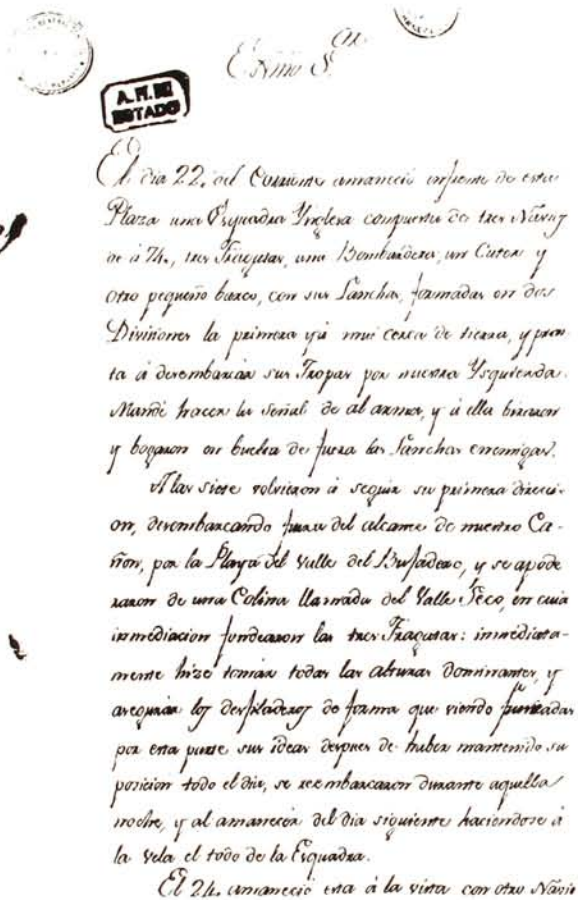 Exmo Sor.
A.H. DE
ESTADO
El dia 22. del Corriente amanecio enfrente de esta
Plaza una Esquadra Ynglesa compuesta de tres Navios
de á 74., tres Fragatas, una Bombardera, un Cuter y
otro pequeño barco, con sus Lanchas, formadas en dos
Divisiones la primera yá mui cerca de tierra, y pron-
ta á desembarcar sus Tropas por nuestra Ysquierda.
Mandé hacer la señal de al arma, y á ella biraron
y bogaron en buelta de fuera las Lanchas enemigas.
Alas siete volvieron á seguir su primera direcci-
on, desembarcando fuera del alcance de nuestro Ca-
ñon, por la Playa del Valle del Bufadero, y se apode
raron de una Colina llamada del Valle Seco, en cuia
inmediacion fondearon las tres Fragatas: inmediata-
mente hize tomar todas las alturas dominantes, y
asegurar los desfiladeros de forma que viendo
por esta parte sus ideas despues de haber mantenido su
posicion todo el dia, se reembarcaron durante aquella
noche, y al amanecer del dia siguiente haciendose á
la vela el todo de la Esquadra.
El 24. amanecio esta á la vista con otro Navio